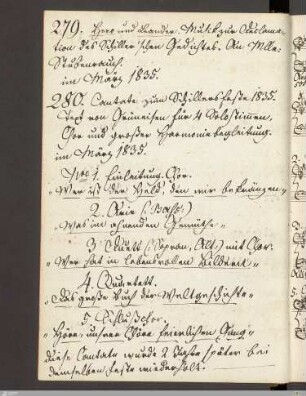 279. Hero und Leander. Musik zur Declama-
tion des Schiller'schen Gedichtes. An Mlle
Stubenrauch.
im März 1835.
280. Cantate zum Schillersfeste 1835.
Text von Grüneisen für 4 Solostimmen,
Chor und großer Harmoniebegleitung.
im März 1835
Nro 1. Einleitung. Chor.
"Wer ist der Held, den wir bekränzen"
2. Arie (Bass:)
"Was im ahnenden Gemüthe"
3. Duett (Sopran, Alt:) mit Chor.
"Wer hat in lebensvollen Bildern"
4. Quartett.
"Das große Buch der Weltgeschichte"
5. Schlußchor.
"Höre unsrer Chöre feierlichen Sang"
Diese Cantate wurde 2 Jahre später bei
demselben Feste wiederholt.